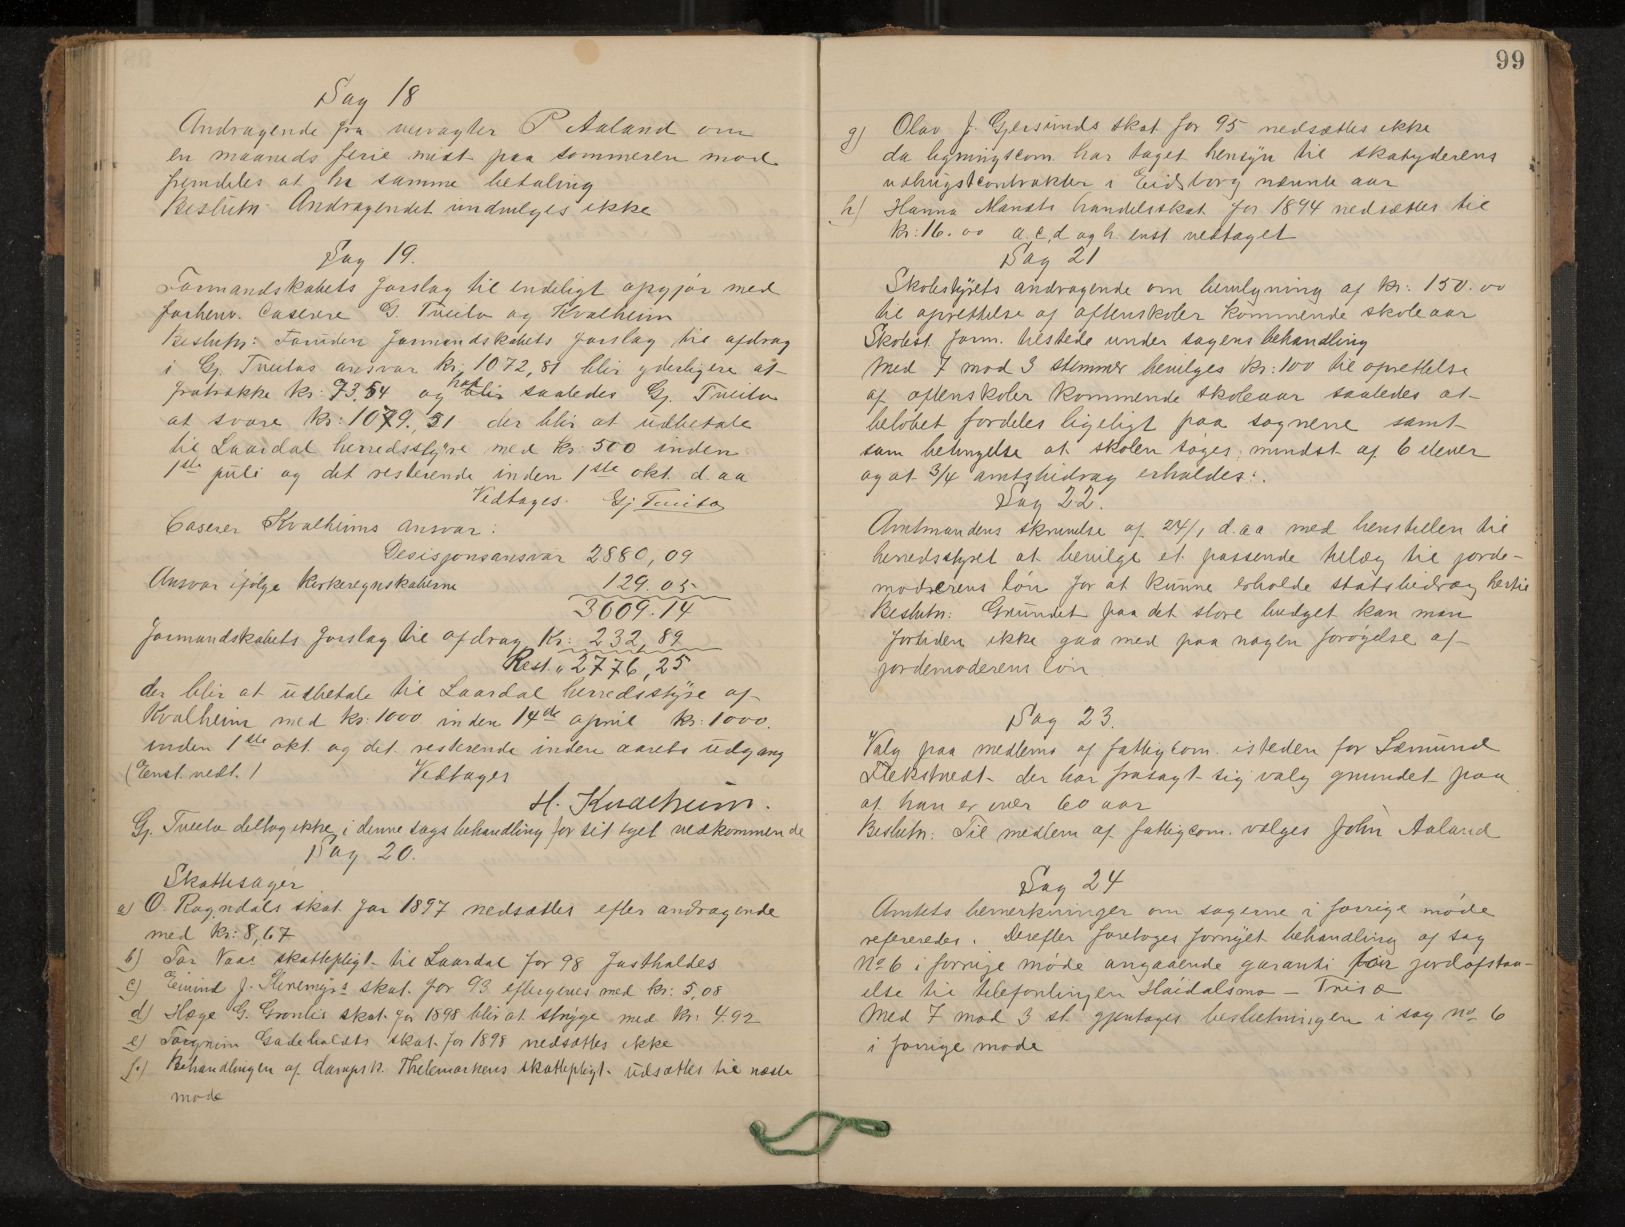 Sag 18
Andragende fra veivogter P Aaland om
en maaneds ferie midt paa sommeren mod
fremdeles at ha samme betaling
Beslutn. Andragendet indvilges ikke
Sag 19.
Formandskabets forslag til endeligt opgjör med
forhenv. Caserere G. Tveito og Kvalheim
Beslutn: Foruden formandskabets forslag til afdrag
i Gj. Tveitos ansvar kr. 1072,81 blir yderligere at
fratrække kr: 93.54 og har saaledes Gj. Tveito
at svare kr: 1079.,51 der blir at udbetale
til Laardal herredsstyre med kr: 500 inden
1ste juli og det resterende inden 1ste okt. d. aa
Vedtages. Gj Tveito
Caserer Kvalheims ansvar:
Desisjonsansvar 2880,09
Ansvar ifølge kirkeregnskaberne 129.05
3009.14
Formandskabets forslag til afdrag Kr: 232,89
Rest. " 2776,25
der blir at udbetale til Laardal herredsstyre af
Kvalheim med kr: 1000 inden 14de april kr: 1000.
inden 1ste okt. og det resterende inden aarets udgang
(Enst. vedt.) Vedtages
H. Kvalheim.
Gj. Tveito deltog ikke i denne sags behandling for sit eget vedkommende
Sag 20.
Skattesager
a) O. Rogndals skat for 1897 nedsættes efter andragende
med kr: 8,67
b) Tor Vaas skattepligt til Laardal for 98 fastholdes
c) Eivind J. skat for 93 eftergives med kr: 5,08
d) Hæge G. Grønlis skat for 1898 blir at stryge med kr: 4.92
e) Torgrim Gadeholdts skat for 1898 nedsættes ikke
f.) Behandlingen af dampsk. Thelemarkens skattepligt udsættes til næste
møde
99
g) Olav J. Gjersunds skat for 95 nedsættes ikke
da ligningscom. har taget hensyn til skatyderens
udhugstcontrakter i Eidsborg nævnte aar
h) Hanna Manats handelsskat for 1894 nedsættes til
kr: 16.00 a. c, d og h. enst vedtaget
Sag 21
Skolestyrets andragende om bevilgning af kr: 150.00
til oprettelse af aftenskoler kommende skoleaar
Skolest. form. tilstede under sagens behandling
Med 7 mod 3 stemmer bevilges kr: 100 til oprettelse
af aftenskoler kommende skoleaar saaledes at
beløbet fordeles ligeligt paa sognene samt
som betingelse at skolen søges, mindst af 6 elever
og at 3/4 amtsbidrag erholdes.
Sag 22.
Amtmandens skrivelse af 24/1 d. aa med henstillen til
herredsstyret at bevilge et passende tillæg til jorde-
moderens løn for at kunne erholde statsbidrag hertil
Beslutn: Grundet paa det store budget kan man
fortiden ikke gaa med paa nogen forøgelse af
jordemoderens løn
Sag 23.
Valg paa medlems af fattigcom. isteden for Sæmund
Flekstvedt der har frasagt sig valg grundet paa
at han er over 60 aar
Beslutn: Til medlem af fattigcom. vælges John Aaland
Sag 24
Amtets bemerkninger om sagerne i forrige møde
refereredes. Derefter foretoges fornyet behandling af sag
No 6 i forrige møde angaaende garanti for jordafstaa-
else til telefonlinjen Høidalsmo – Triså
Med 7 mod 3 st. gjentages beslutningen i sag no 6
i forrige møde